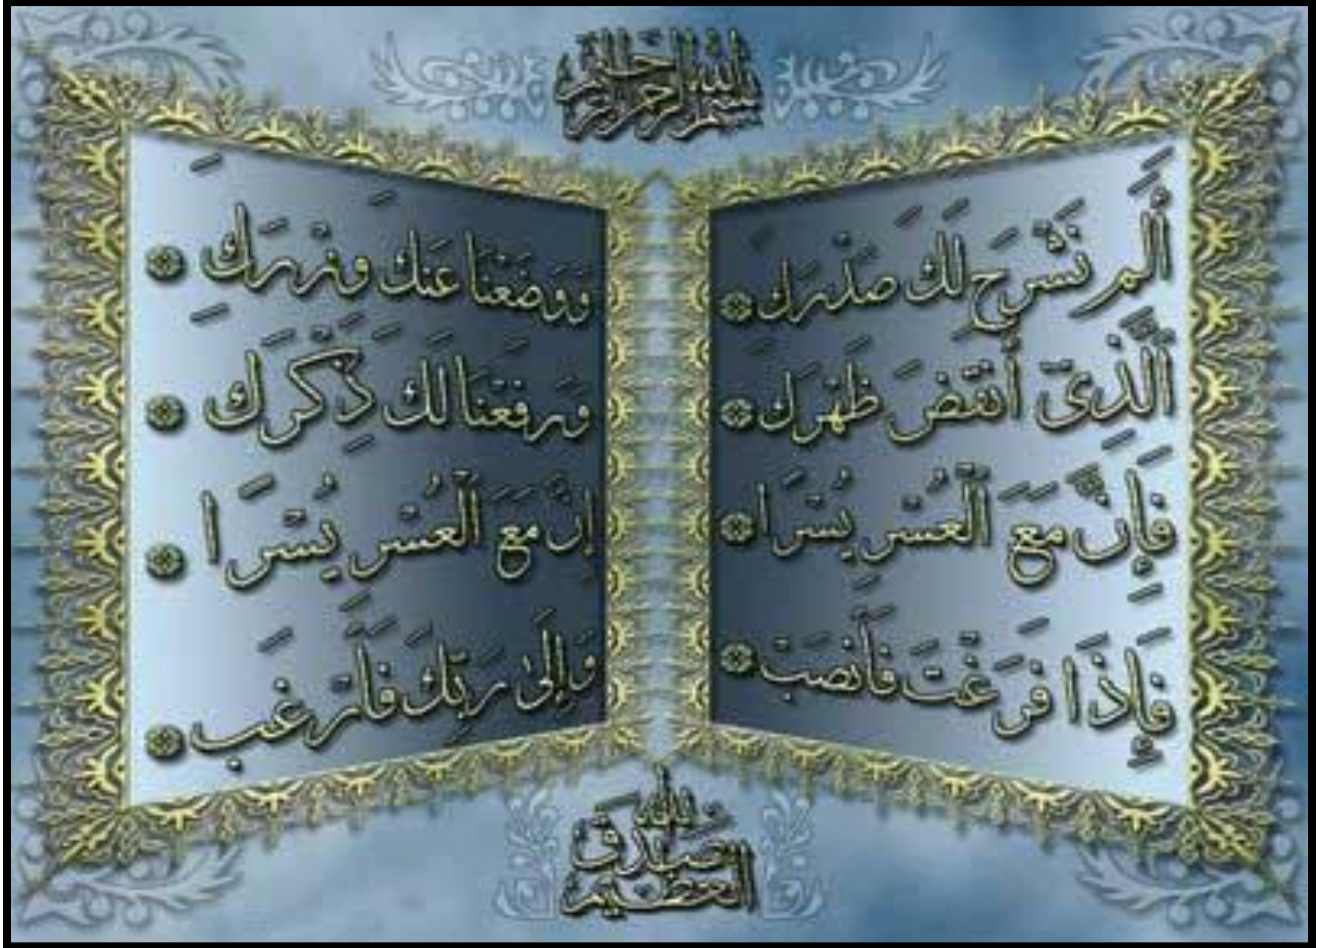 بسم الله الرحمن الرحيم
أَلَمْ نَشْرَحْ لَكَ صَدْرَكَ
وَوَضَعْنَا عَنكَ وِزْرَكَ
ٱلَّذِىٓ أَنقَضَ ظَهْرَكَ
وَرَفَعْنَا لَكَ ذِكْرَكَ
فَإِنَّ مَعَ ٱلْعُسْرِ يُسْرًا
إِنَّ مَعَ ٱلْعُسْرِ يُسْرًا
فَإِذَا فَرَغْتَ فَٱنصَبْ
وَإِلَىٰ رَبِّكَ فَٱرْغَب
صدق الله العظيم